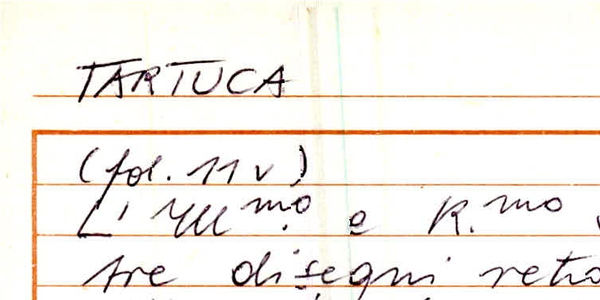 TARTUCA
(fol. 11 v)
L'Ill.mo e R.mo
tre disegni